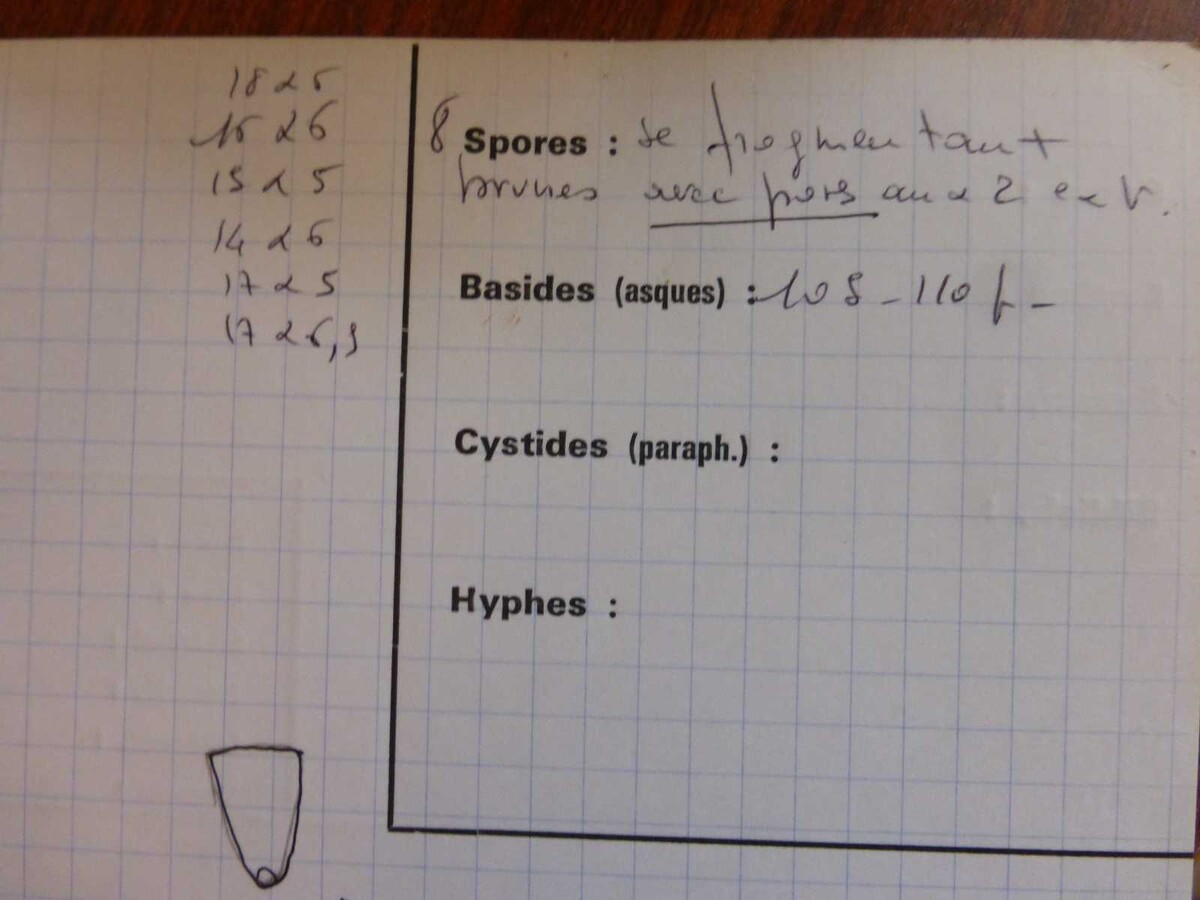 18 x 5
15 x 6
15 x 5
14 x 6
17 x 5
17 x 6,5
8 Spores : se fragmentant
brunes avec pores aux 2 ext.
Basides (asques) : 105 - 110 µ -
Cystides (paraph.) :
Hyphes :